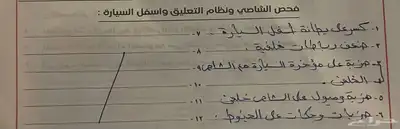 فحص الشاصي ونظام التعليق واسفل السيارة :
١- كسر على بطانة أسفل السيارة ٧-
٢- ضعف رباطات خلفية . ٨-
٣- ضربة على مؤخرة السيارة مع الشاص ٩-
٤- الخلفي . ١٠-
٥- ضربة وصول على الشاص خلفي ١١-
٦- ضربات وحكات على الجنوط . ١٢-
حراج